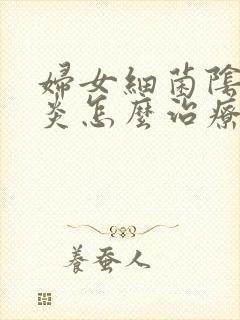 婦女細菌陰
炎怎麼治療
養蚕人